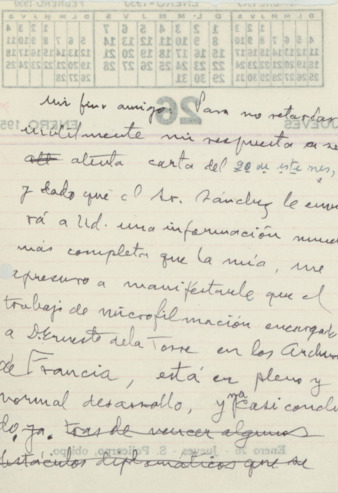 Mi fino amigo: Para no retardar
inútilmente mi respuesta a su
atenta carta del 20 de este mes,
y dado que el Sr. Sánchez le envia
rá a Ud. una información mucho
más completa que la mía, me
apresuro a manifestarle que el
trabajo de microfilmación encargado
a D. Ernesto de la Torre en los Archivos
de Francia, está en pleno y
normal desarrollo, y ya casi conclui
do, ya, tras de vencer algunos
obstáculos diplomáticos que se